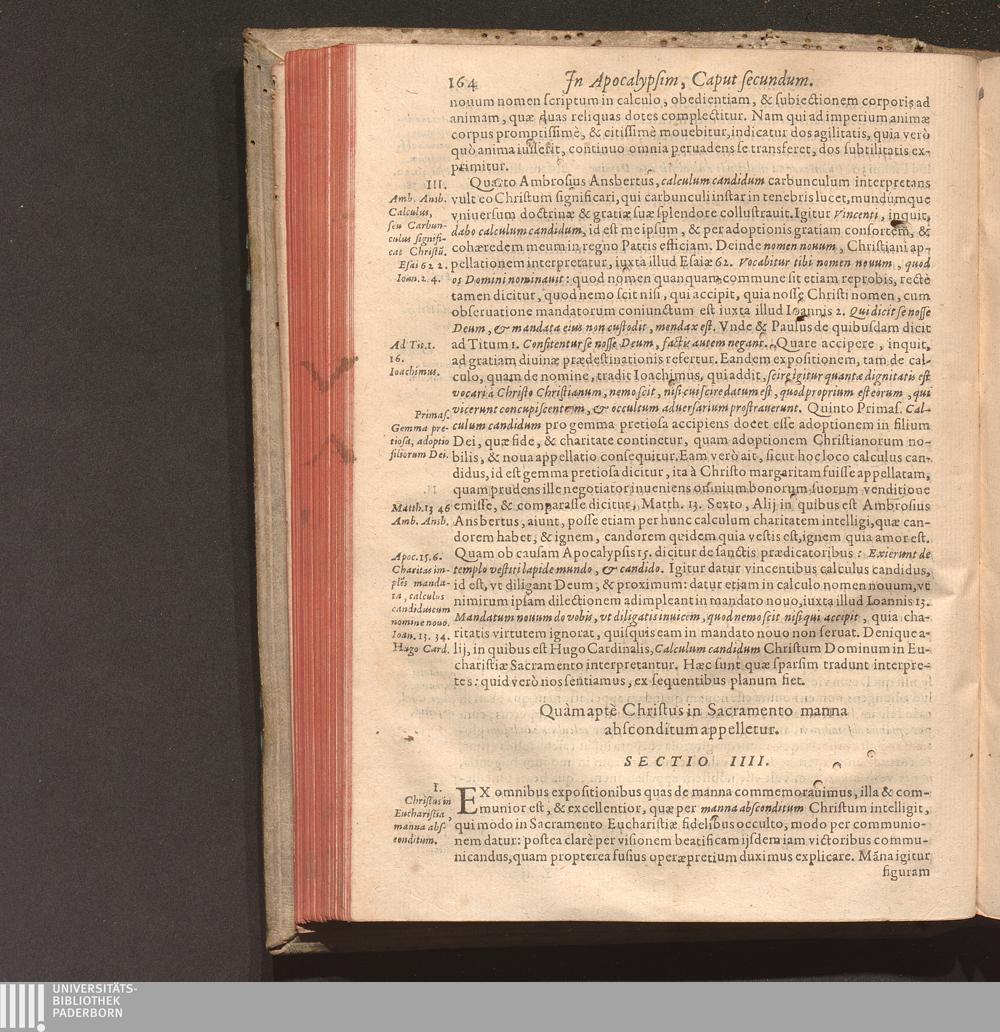 164 In Apocalypsim, Caput secundum.
nouum nomen scriptum in calculo, obedientiam, & subiectionem corporis ad
animam, quæ duas reliquas dotes complectitur. Nam qui ad imperium animæ
corpus promptissimè, & citissimè mouebitur, indicatur dos agilitatis, quia verò
quò anima iusserit, continuo omnia peruadens se transferet, dos subtilitatis ex-
primitur.
III.
Amb. Ansb.
Calculus,
seu Carbun-
culus signifi-
cat Christũ.
Esai 62 2.
Ioan. 2. 4.
Quarto Ambrosius Ansbertus, calculum candidum carbunculum interpretans
vult eo Christum significari, qui carbunculi instar in tenebris lucet, mundumque
vniuersum doctrinæ & gratiæ suæ splendore collustrauit. Igitur Vincenti, inquit,
dabo calculum candidum, id est me ipsum, & per adoptionis gratiam consortem, &
cohæredem meum in regno Patris efficiam. Deinde nomen nouum, Christiani ap-
pellationem interpretatur, iuxta illud Esaiæ 62. Vocabitur tibi nomen nouum, quod
os Domini nominauit: quod nomen quanquam commune sit etiam reprobis, rectè
tamen dicitur, quod nemo scit nisi, qui accipit, quia nosse Christi nomen, cum
obseruatione mandatorum coniunctum est iuxta illud Ioannis 2. Qui dicit se nosse
Deum, & mandata eius non custodit, mendax est. Vnde & Paulus de quibusdam dicit
Ad Tit. 1.
16.
Ioachimus.
ad Titum 1. Confitentur se nosse Deum, factis autem negant. Quare accipere, inquit,
ad gratiam diuinæ prædestinationis refertur. Eandem expositionem, tam de cal-
culo, quam de nomine, tradit Ioachimus, qui addit, scire igitur quantæ dignitatis est
vocari à Christo Christianum, nemo scit, nisi cui scire datum est, quod proprium est eorum, qui
vicerunt concupiscentiam, & occultum aduersarium prostrauerunt. Quinto Primas. Cal-
Primas.
Gemma pre-
tiosa, adoptio
filiorum Dei.
culum candidum pro gemma pretiosa accipiens docet esse adoptionem in filium
Dei, quæ fide, & charitate continetur, quam adoptionem Christianorum no-
bilis, & noua appellatio consequitur. Eam verò ait, sicut hoc loco calculus can-
didus, id est gemma pretiosa dicitur, ita à Christo margaritam fuisse appellatam,
quam prudens ille negotiator inueniens omnium bonorum suorum venditione
Matth. 13 46
Amb. Ansb.
emisse, & comparasse dicitur, Matth. 13. Sexto, Alij in quibus est Ambrosius
Ansbertus, aiunt, posse etiam per hunc calculum charitatem intelligi, quæ can-
dorem habet, & ignem, candorem quidem quia vestis est, ignem quia amor est.
Apoc. 15. 6.
Charitas im-
plẽs manda-
ta, calculus
candidus cum
nomine nouo.
Ioan. 13. 34.
Hugo Card.
Quam ob causam Apocalypsis 15. dicitur de sanctis prædicatoribus: Exierunt de
templo vestiti lapide mundo, & candido. Igitur datur vincentibus calculus candidus,
id est, vt diligant Deum, & proximum: datur etiam in calculo nomen nouum, vt
nimirum ipsam dilectionem adimpleant in mandato nouo, iuxta illud Ioannis 13.
Mandatum nouum do vobis, vt diligatis inuicem, quod nemo scit nisi qui accipit, quia cha-
ritatis virtutem ignorat, quisquis eam in mandato nouo non seruat. Denique a-
lij, in quibus est Hugo Cardinalis, Calculum candidum Christum Dominum in Eu-
charistiæ Sacramento interpretantur. Hæc sunt quæ sparsim tradunt interpre-
tes: quid verò nos sentiamus, ex sequentibus planum fiet.
Quàm aptè Christus in Sacramento manna
absconditum appelletur.
SECTIO IIII.
I.
Christus in
Eucharistia,
manna abs-
conditum.
EX omnibus expositionibus quas de manna commemorauimus, illa & com-
munior est, & excellentior, quæ per manna absconditum Christum intelligit,
qui modo in Sacramento Eucharistiæ fidelibus occulto, modo per communio-
nem datur: postea clarè per visionem beatificam ijsdem iam victoribus commu-
nicandus, quam propterea fusius operæpretium duximus explicare. Mãna igitur
figuram
UNIVERSITÄTS-
BIBLIOTHEK
PADERBORN